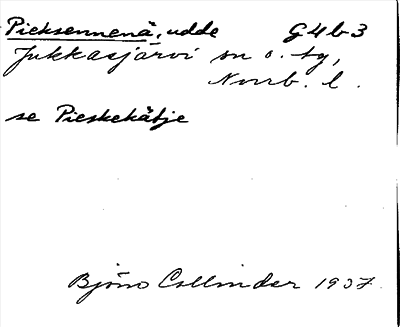 Pieksennenä, udde G4b3
Jukkasjärvi sn o. tg,
Norrb. l.
se Pieskekätje
Björn Collinder 1937.